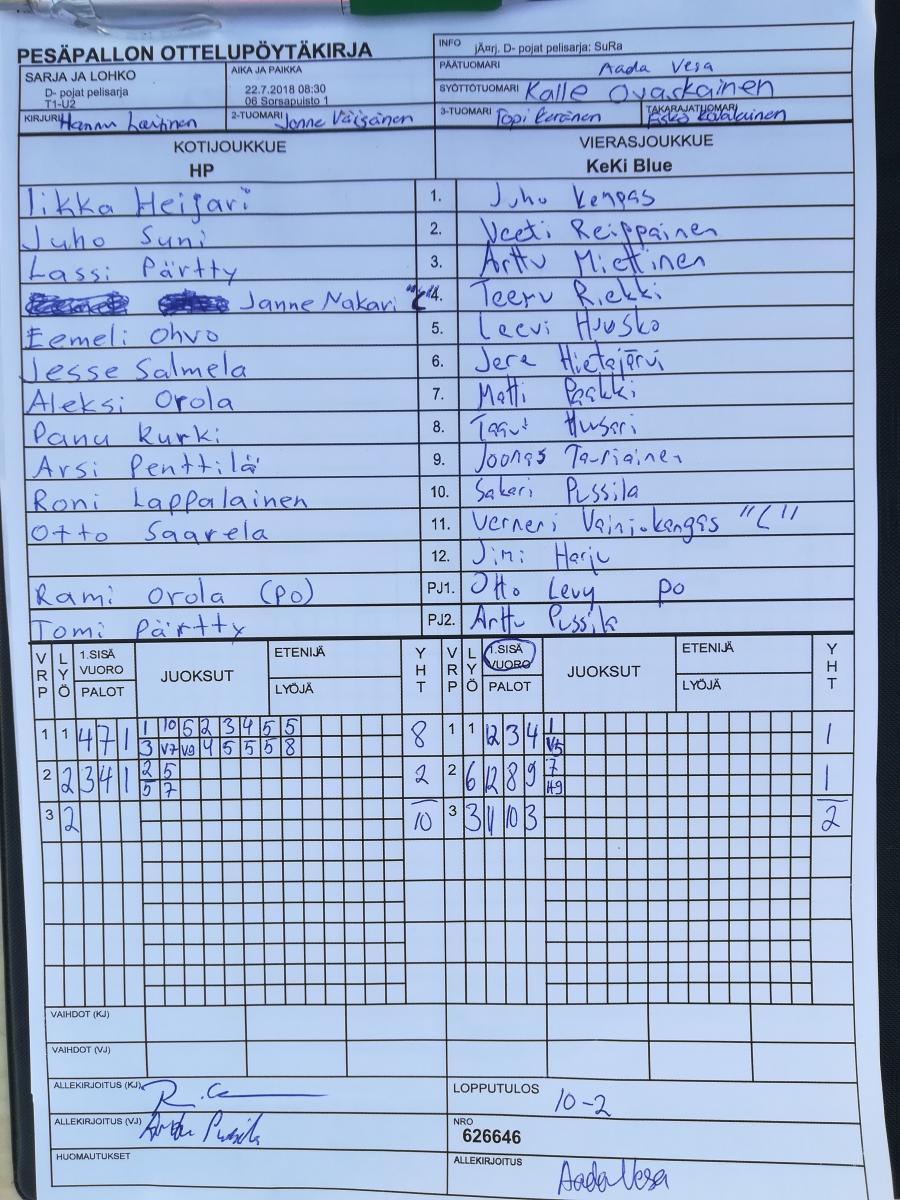 PESÄPALLON OTTELUPÖYTÄKIRJA
INFO jÄ¤rj. D- pojat pelisarja; SuRa
SARJA JA LOHKO
D- pojat pelisarja
T1-U2
AIKA JA PAIKKA
22.7.2018 08:30
06 Sorsapuisto 1
PÄÄTUOMARI Aada Vesa
SYÖTTÖTUOMARI Kalle Ovaskainen
KIRJURI Hannu Laitinen
2-TUOMARI Janne Väisänen
3-TUOMARI Topi Keränen
TAKARAJATUOMARI Esko
KOTIJOUKKUE
HP
VIERASJOUKKUE
KeKi Blue
Iikka Heijari 1. Juho Kengas
Juho Suni 2. Veeti Reippainen
Lassi Pärtty 3. Arttu Miettinen
Janne Nakari "C" 4. Teeru Riekki
Eemeli Ohvo 5. Leevi Huusko
Jesse Salmela 6. Jere Hietajärvi
Aleksi Orola 7. Matti Paakki
Panu Kurki 8. Husari
Arsi Penttilä 9. Joonas Tauriainen
Roni Lappalainen 10. Sakari Pussila
Otto Saarela 11. Verneri Vainiokangas "C"
12. Jimi Harju
Rami Orola (PO) PJ1. Otto Levy PO
Tomi Pärtty PJ2. Arttu Pussila
VRP LYÖ 1.SISÄ VUORO PALOT JUOKSUT ETENIJÄ LYÖJÄ YHT VRP LYÖ 1.SISÄ VUORO PALOT JUOKSUT ETENIJÄ LYÖJÄ YHT
1 1 4 7 1 1 10 5 2 3 4 5 5 8 1 1 12 3 4 1 1
3 V7 V9 4 5 5 5 8 V5
2 2 3 4 1 2 5 2 2 6 12 8 9 7 1
5 7 H9
3 2 10 3 3 11 10 3 2
VAIHDOT (KJ)
VAIHDOT (VJ)
ALLEKIRJOITUS (KJ)
LOPPUTULOS 10-2
ALLEKIRJOITUS (VJ) Arttu Pussila
NRO
626646
HUOMAUTUKSET
ALLEKIRJOITUS Aada Vesa